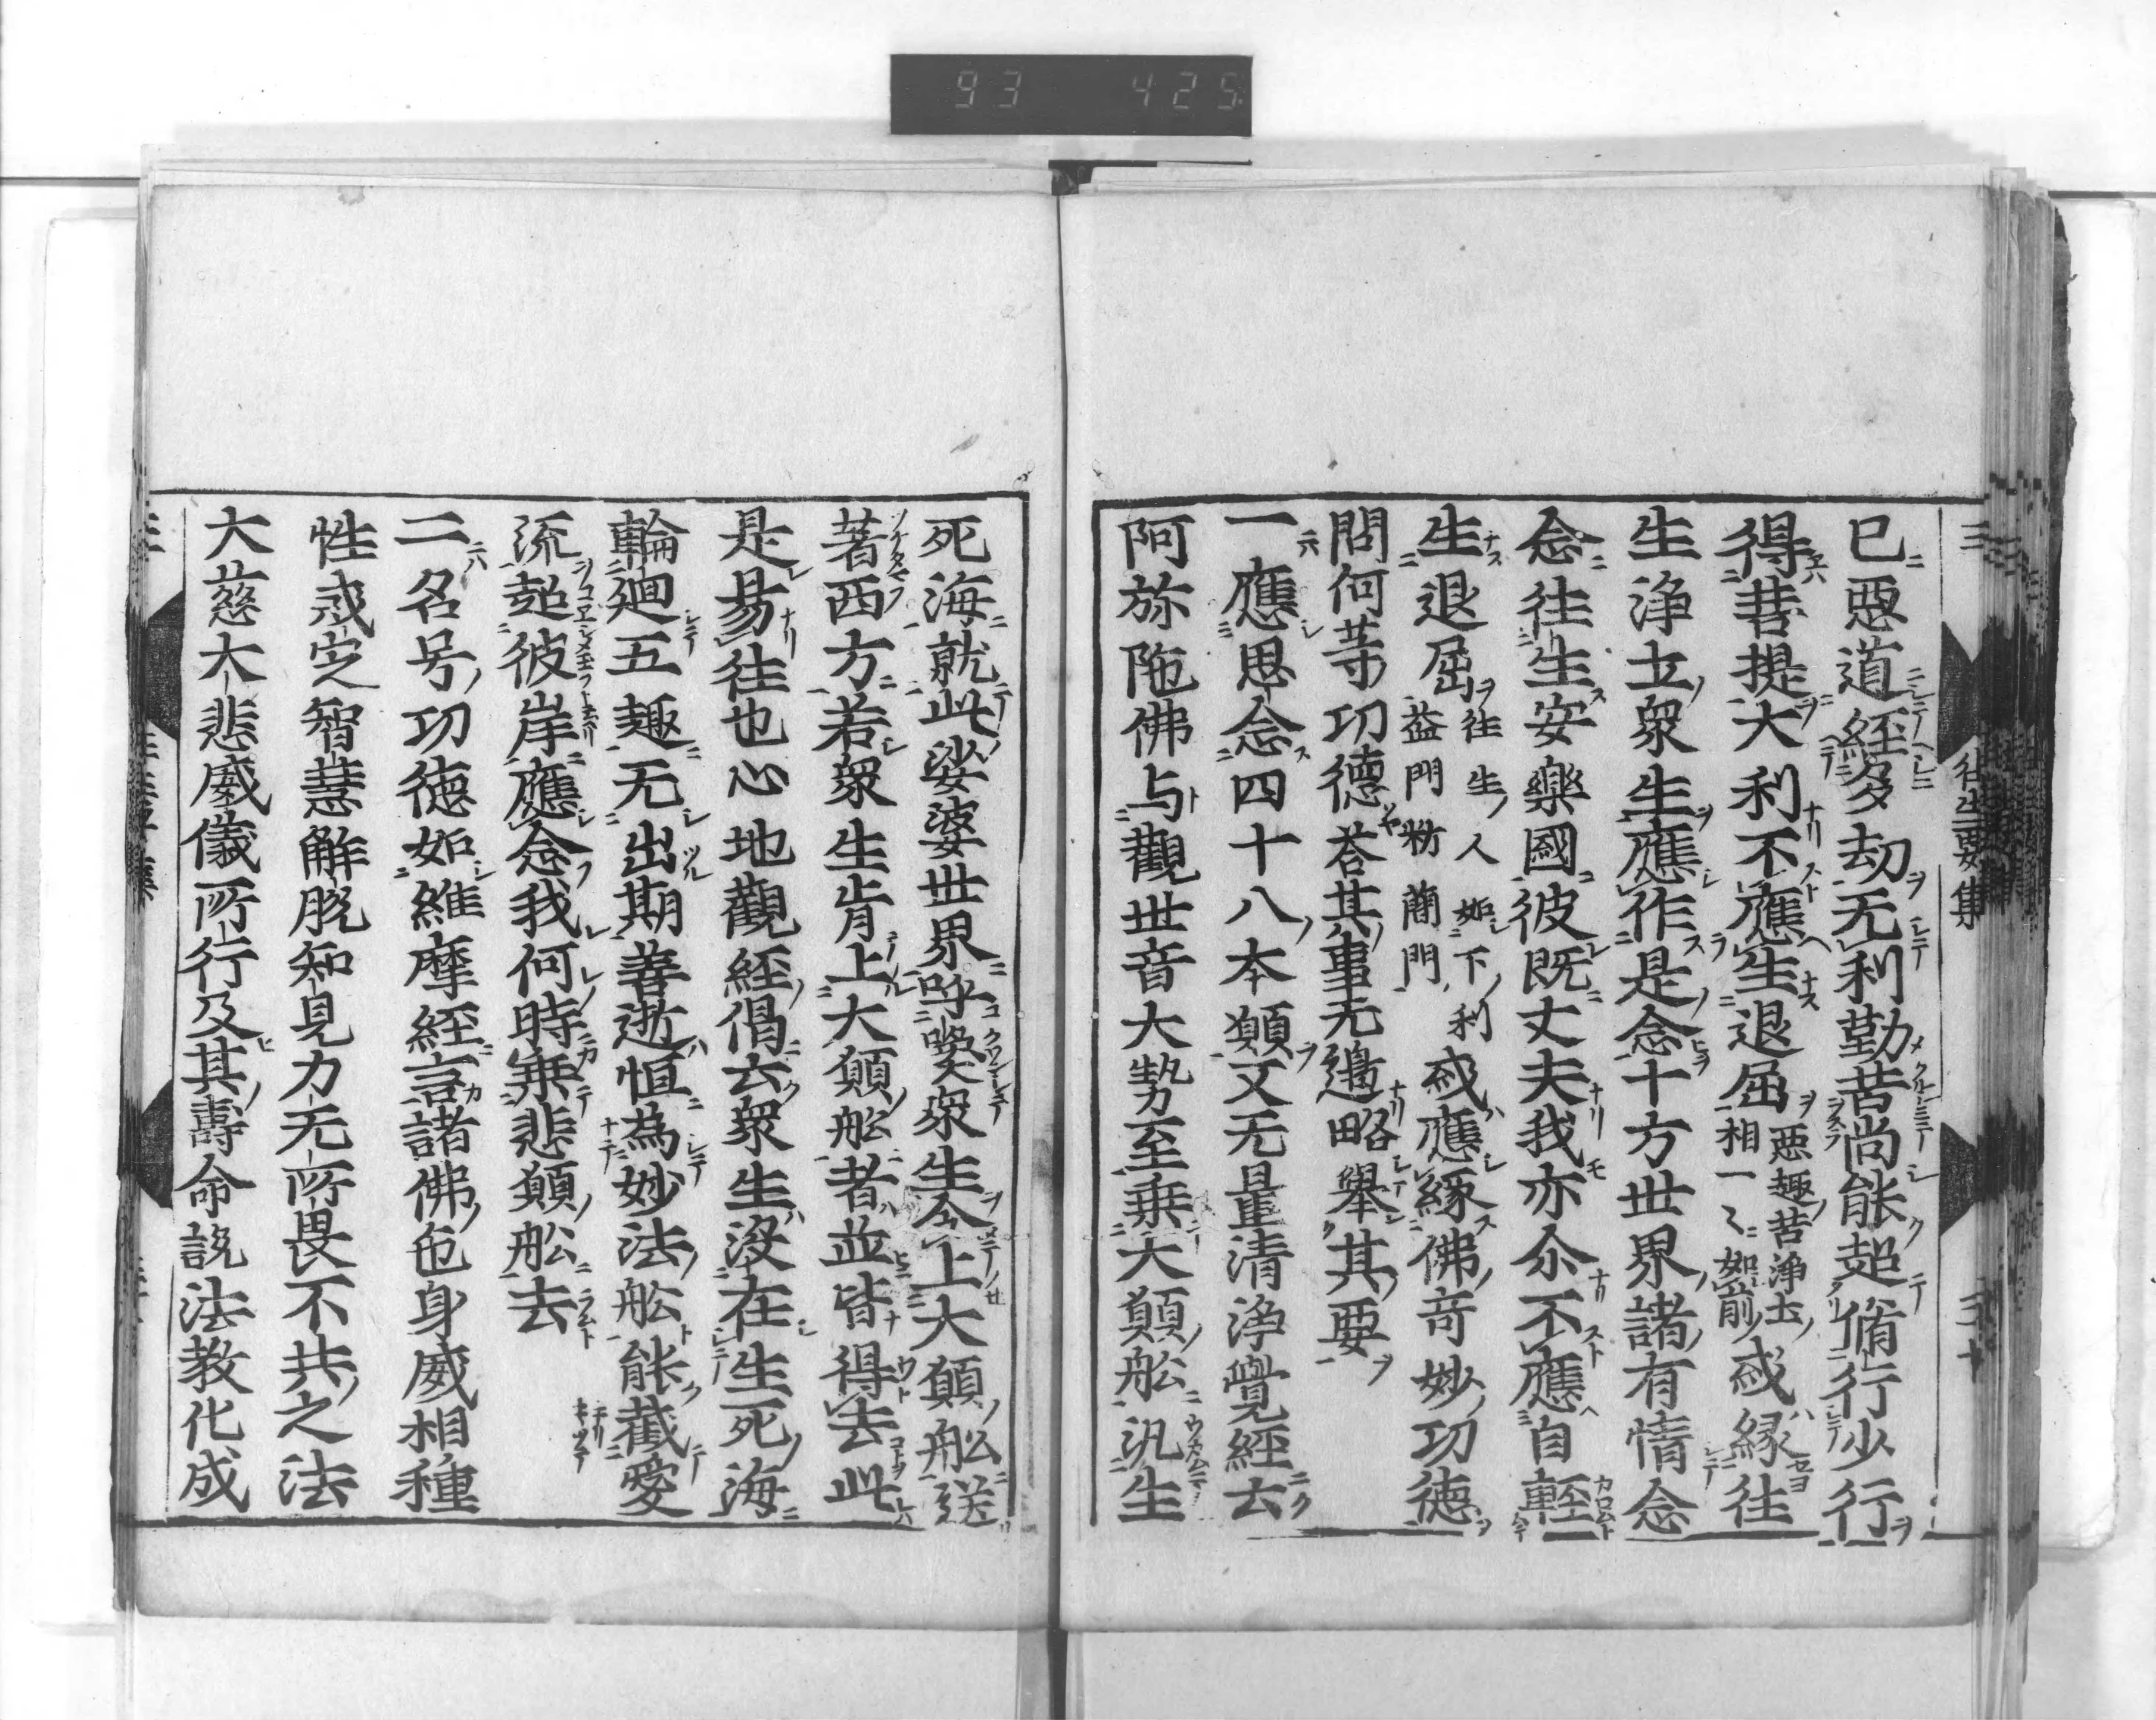 93 425
三 往生要集 三十
已惡道經多劫无利勤苦尚能超脩行少行
得菩提大利不應生退屈惡趣苦淨土相一〻如前或緣往
生淨土衆生應作是念十方世界諸有情念
念往生安樂國彼既丈夫我亦尒不應自輕
生退屈往生人如下利益門料蕳門或應緣佛奇妙功德
問何等功德荅其事无邊略舉其要
一應思念四十八本願又无量清淨覺經云
阿弥陁佛与觀世音大勢至乗大願舩汎生
死海就此娑婆世界呼喚衆生令上大願舩送
著西方若衆生肯上大願舩者並皆得去此
是易往也心地觀經偈云衆生沒在生死海
輪廻五趣无出期善逝恒為妙法舩能截愛
流超彼岸應念我何時乗悲願舩去
二名号功德如維摩經言諸佛色身威相種
性戒定智慧解脱知見力无所畏不共之法
大慈大悲威儀所行及其壽命説法教化成